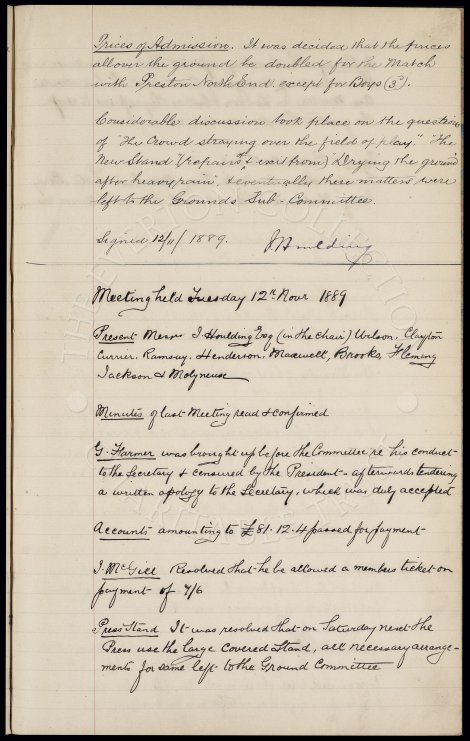 Prices of Admission. It was decided that the prices
all over the ground be doubled for the Match
with Preston North End. except for Boys (3d).
Considerable discussion took place on the question
of "The Crowd straying over the field of play." "The
New Stand (repairs to, & exit from) & Drying the ground
after heavy rain", & eventually these matters were
left to the Grounds Sub-Committee.
Signed 12/11/1889. J Houlding
Meeting held Tuesday 12th Novr 1889
Present Messrs J. Houlding Esq (in the chair) Wilson, Clayton
Currier, Ramsay, Henderson, Maxwell, Brooks, Fleming
Jackson & Molyneux
Minutes of last Meeting read & confirmed
G. Farmer was brought up before the Committee re his conduct
to the Secretary & censured by the President - afterwards tendering
a written apology to the Secretary, which was duly accepted
Accounts amounting to £81.12.4 passed for payment
J. McGill Resolved that he be allowed a members ticket on
payment of 7/6
Press Stand It was resolved that on Saturday next the
Press use the large covered Stand, all necessary arrange-
ments for same left to the Ground Committee
THE EVERTON COLLECTION
CHARITABLE TRUST